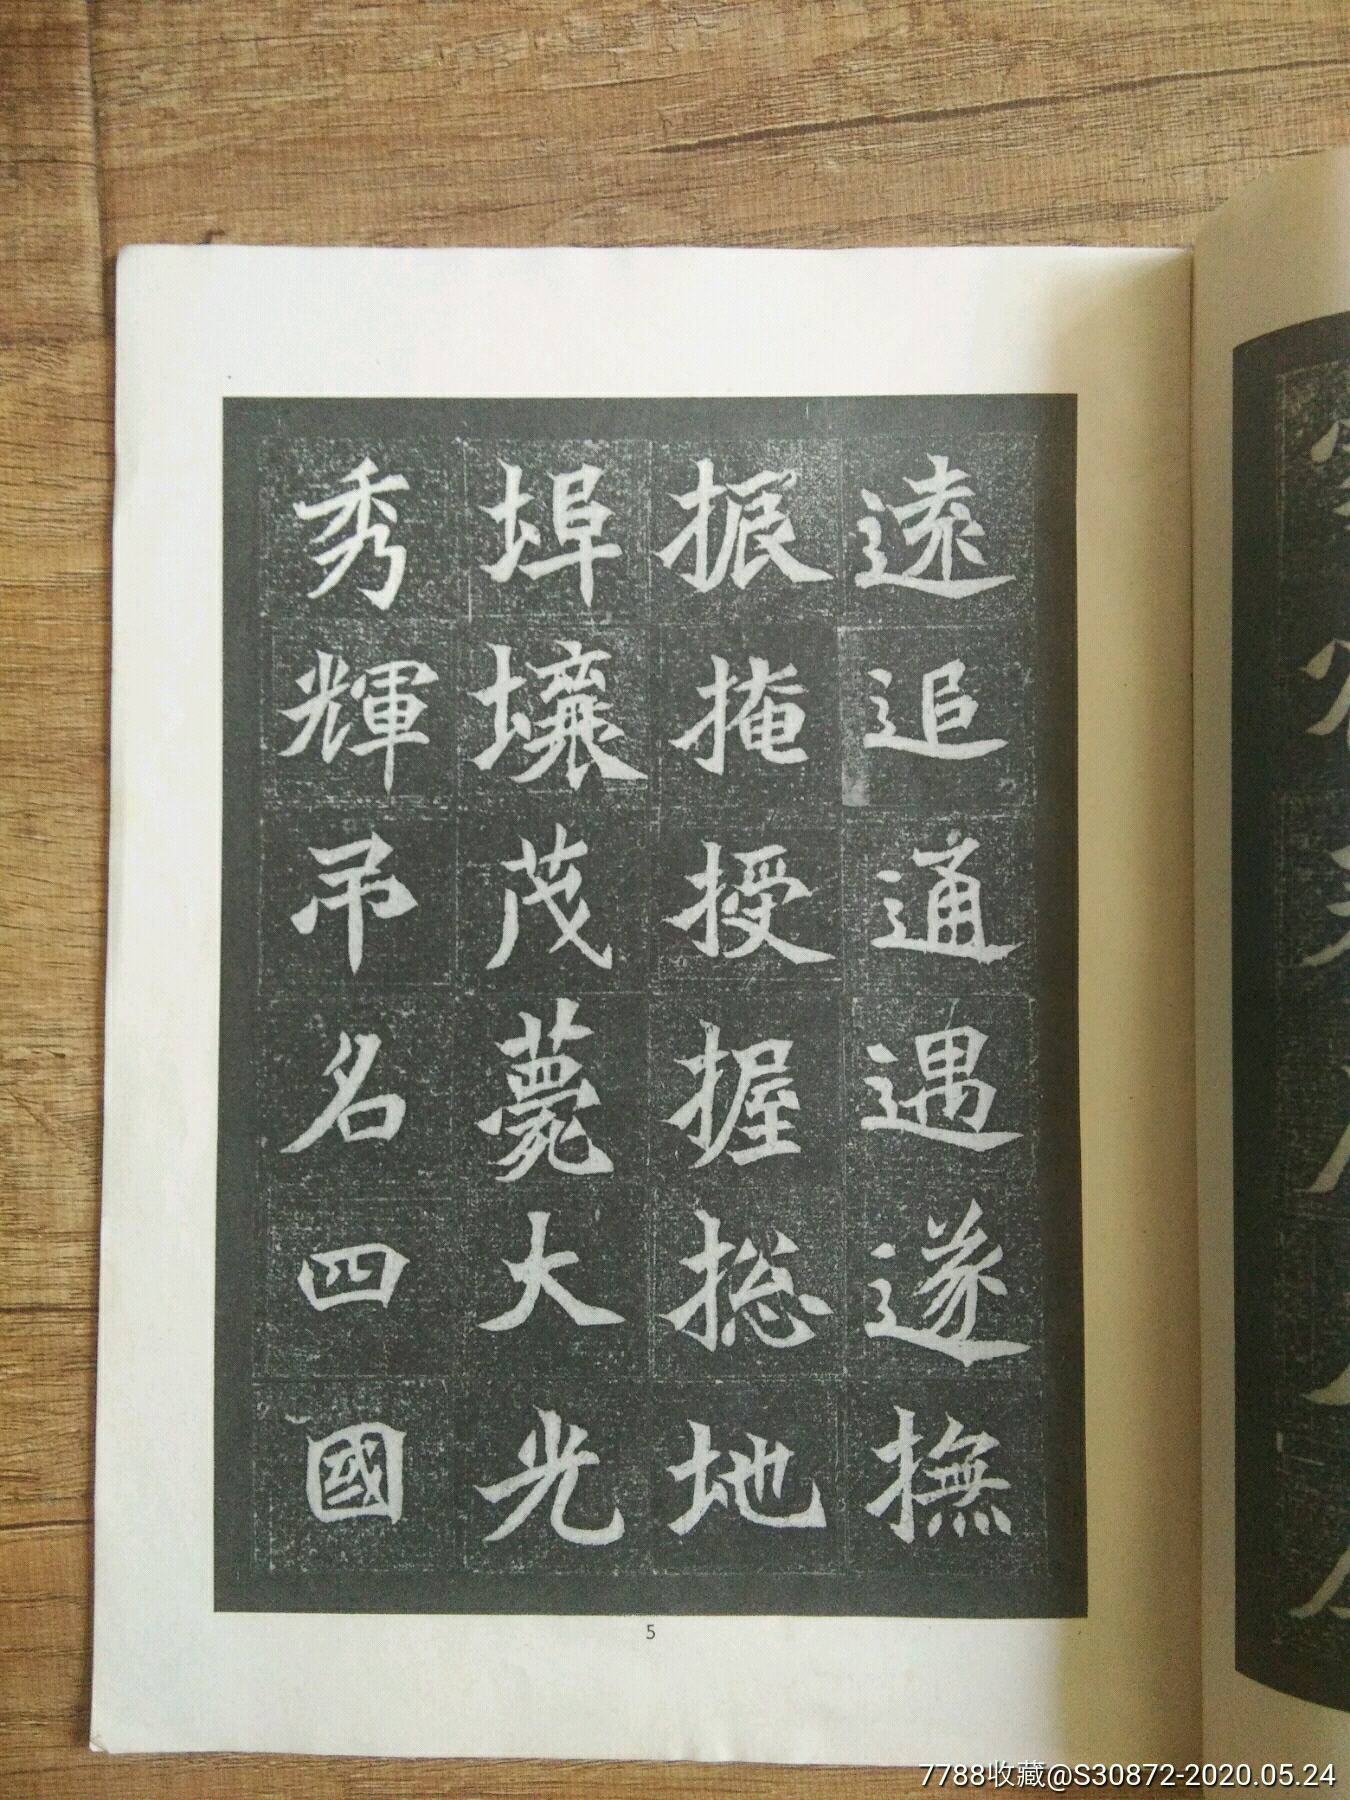 遠追通遇遂撫
振掩授握揔地
埠壤茂薨大光
秀輝弔名四國
5
7788收藏@S30872-2020.05.24